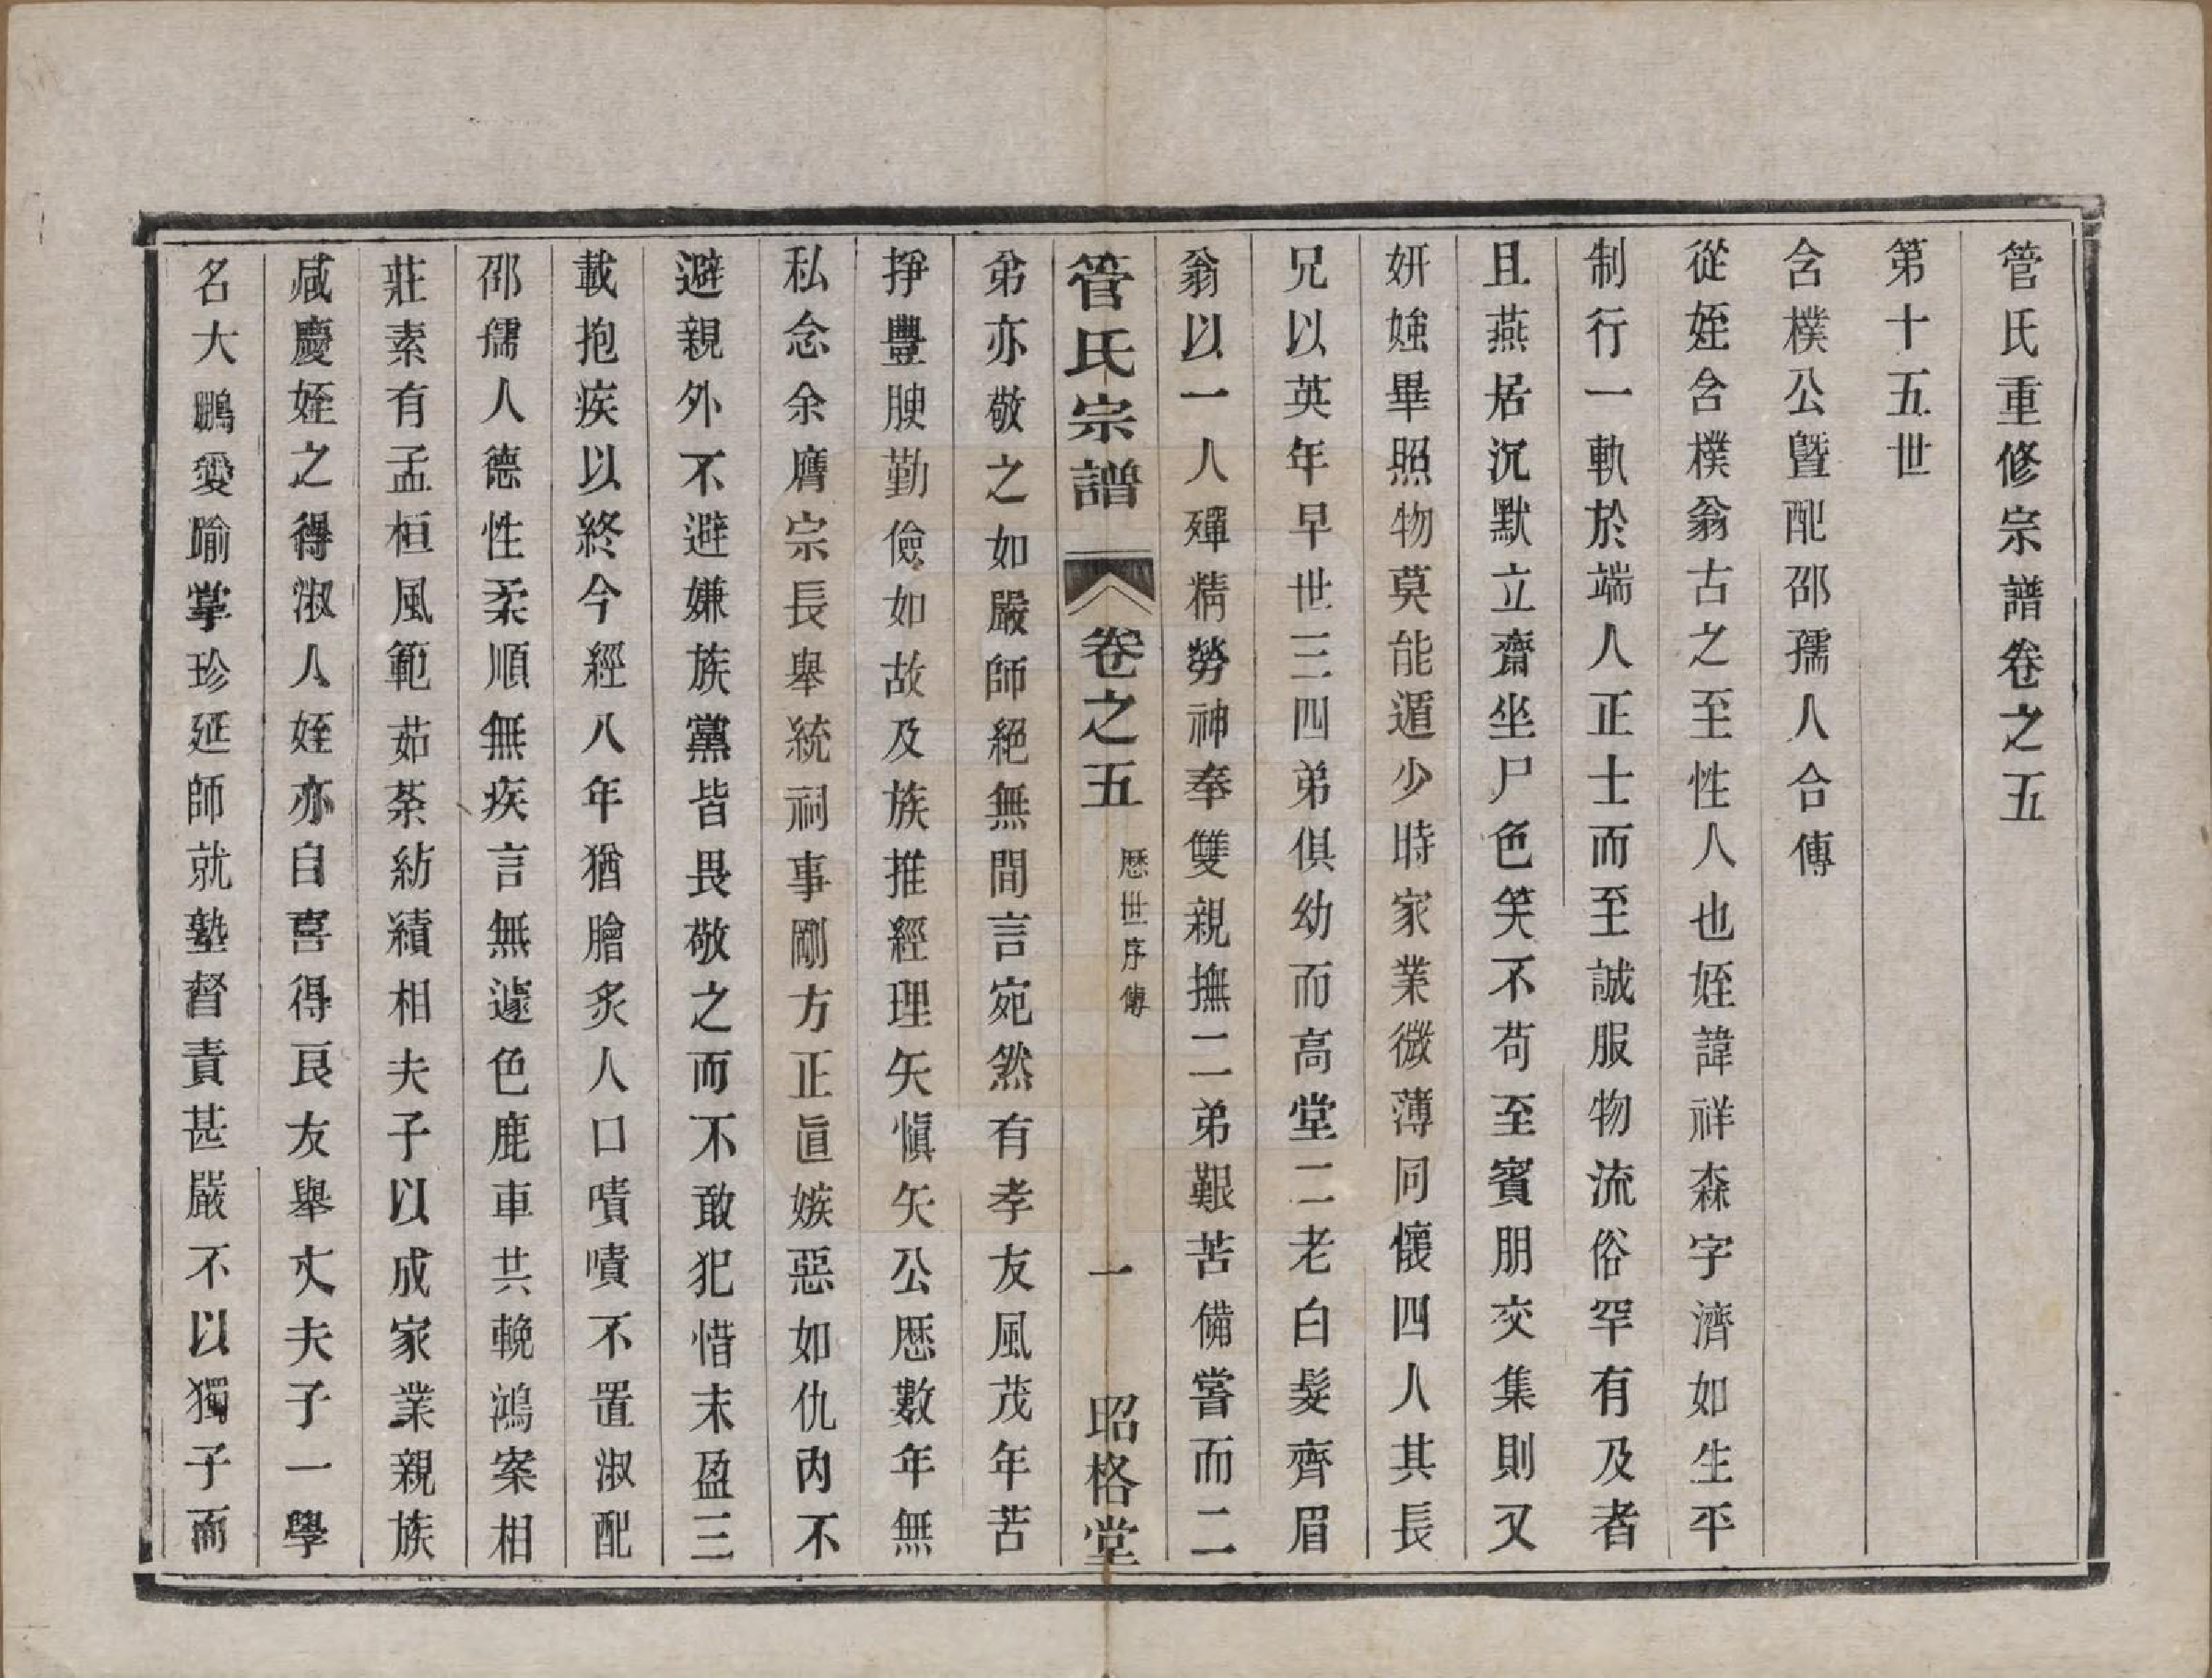 管氏重修宗譜卷之五
第十五世
含樸公暨配邵孺人合傳
從姪含樸翁古之至性人也姪諱祥森字濟如生平
制行一軌於端人正士而至誠服物流俗罕有及者
且燕居沉默立齋坐尸色笑不苟至賓朋交集則又
妍媸畢照物莫能遁少時家業微薄同懷四人其長
兄以英年早世三四弟俱幼而高堂二老白髮齊眉
翁以一人殫精勞神奉雙親撫二弟艱苦備嘗而二
管氏宗譜
卷之五
歷世序傳
一
昭格堂
弟亦敬之如嚴師絕無間言宛然有孝友風茂年苦
掙豐腴勤儉如故及族推經理矢愼矢公歷數年無
私念余膺宗長舉統祠事剛方正直嫉惡如仇內不
避親外不避嫌族黨皆畏敬之而不敢犯惜未盈三
載抱疾以終今經八年猶膾炙人口嘖嘖不置淑配
邵孺人德性柔順無疾言無遽色鹿車共輓鴻案相
莊素有孟桓風範茹荼紡績相夫子以成家業親族
咸慶姪之得淑人姪亦自喜得良友舉丈夫子一學
名大鵬愛踰掌珍延師就塾督責甚嚴不以獨子而